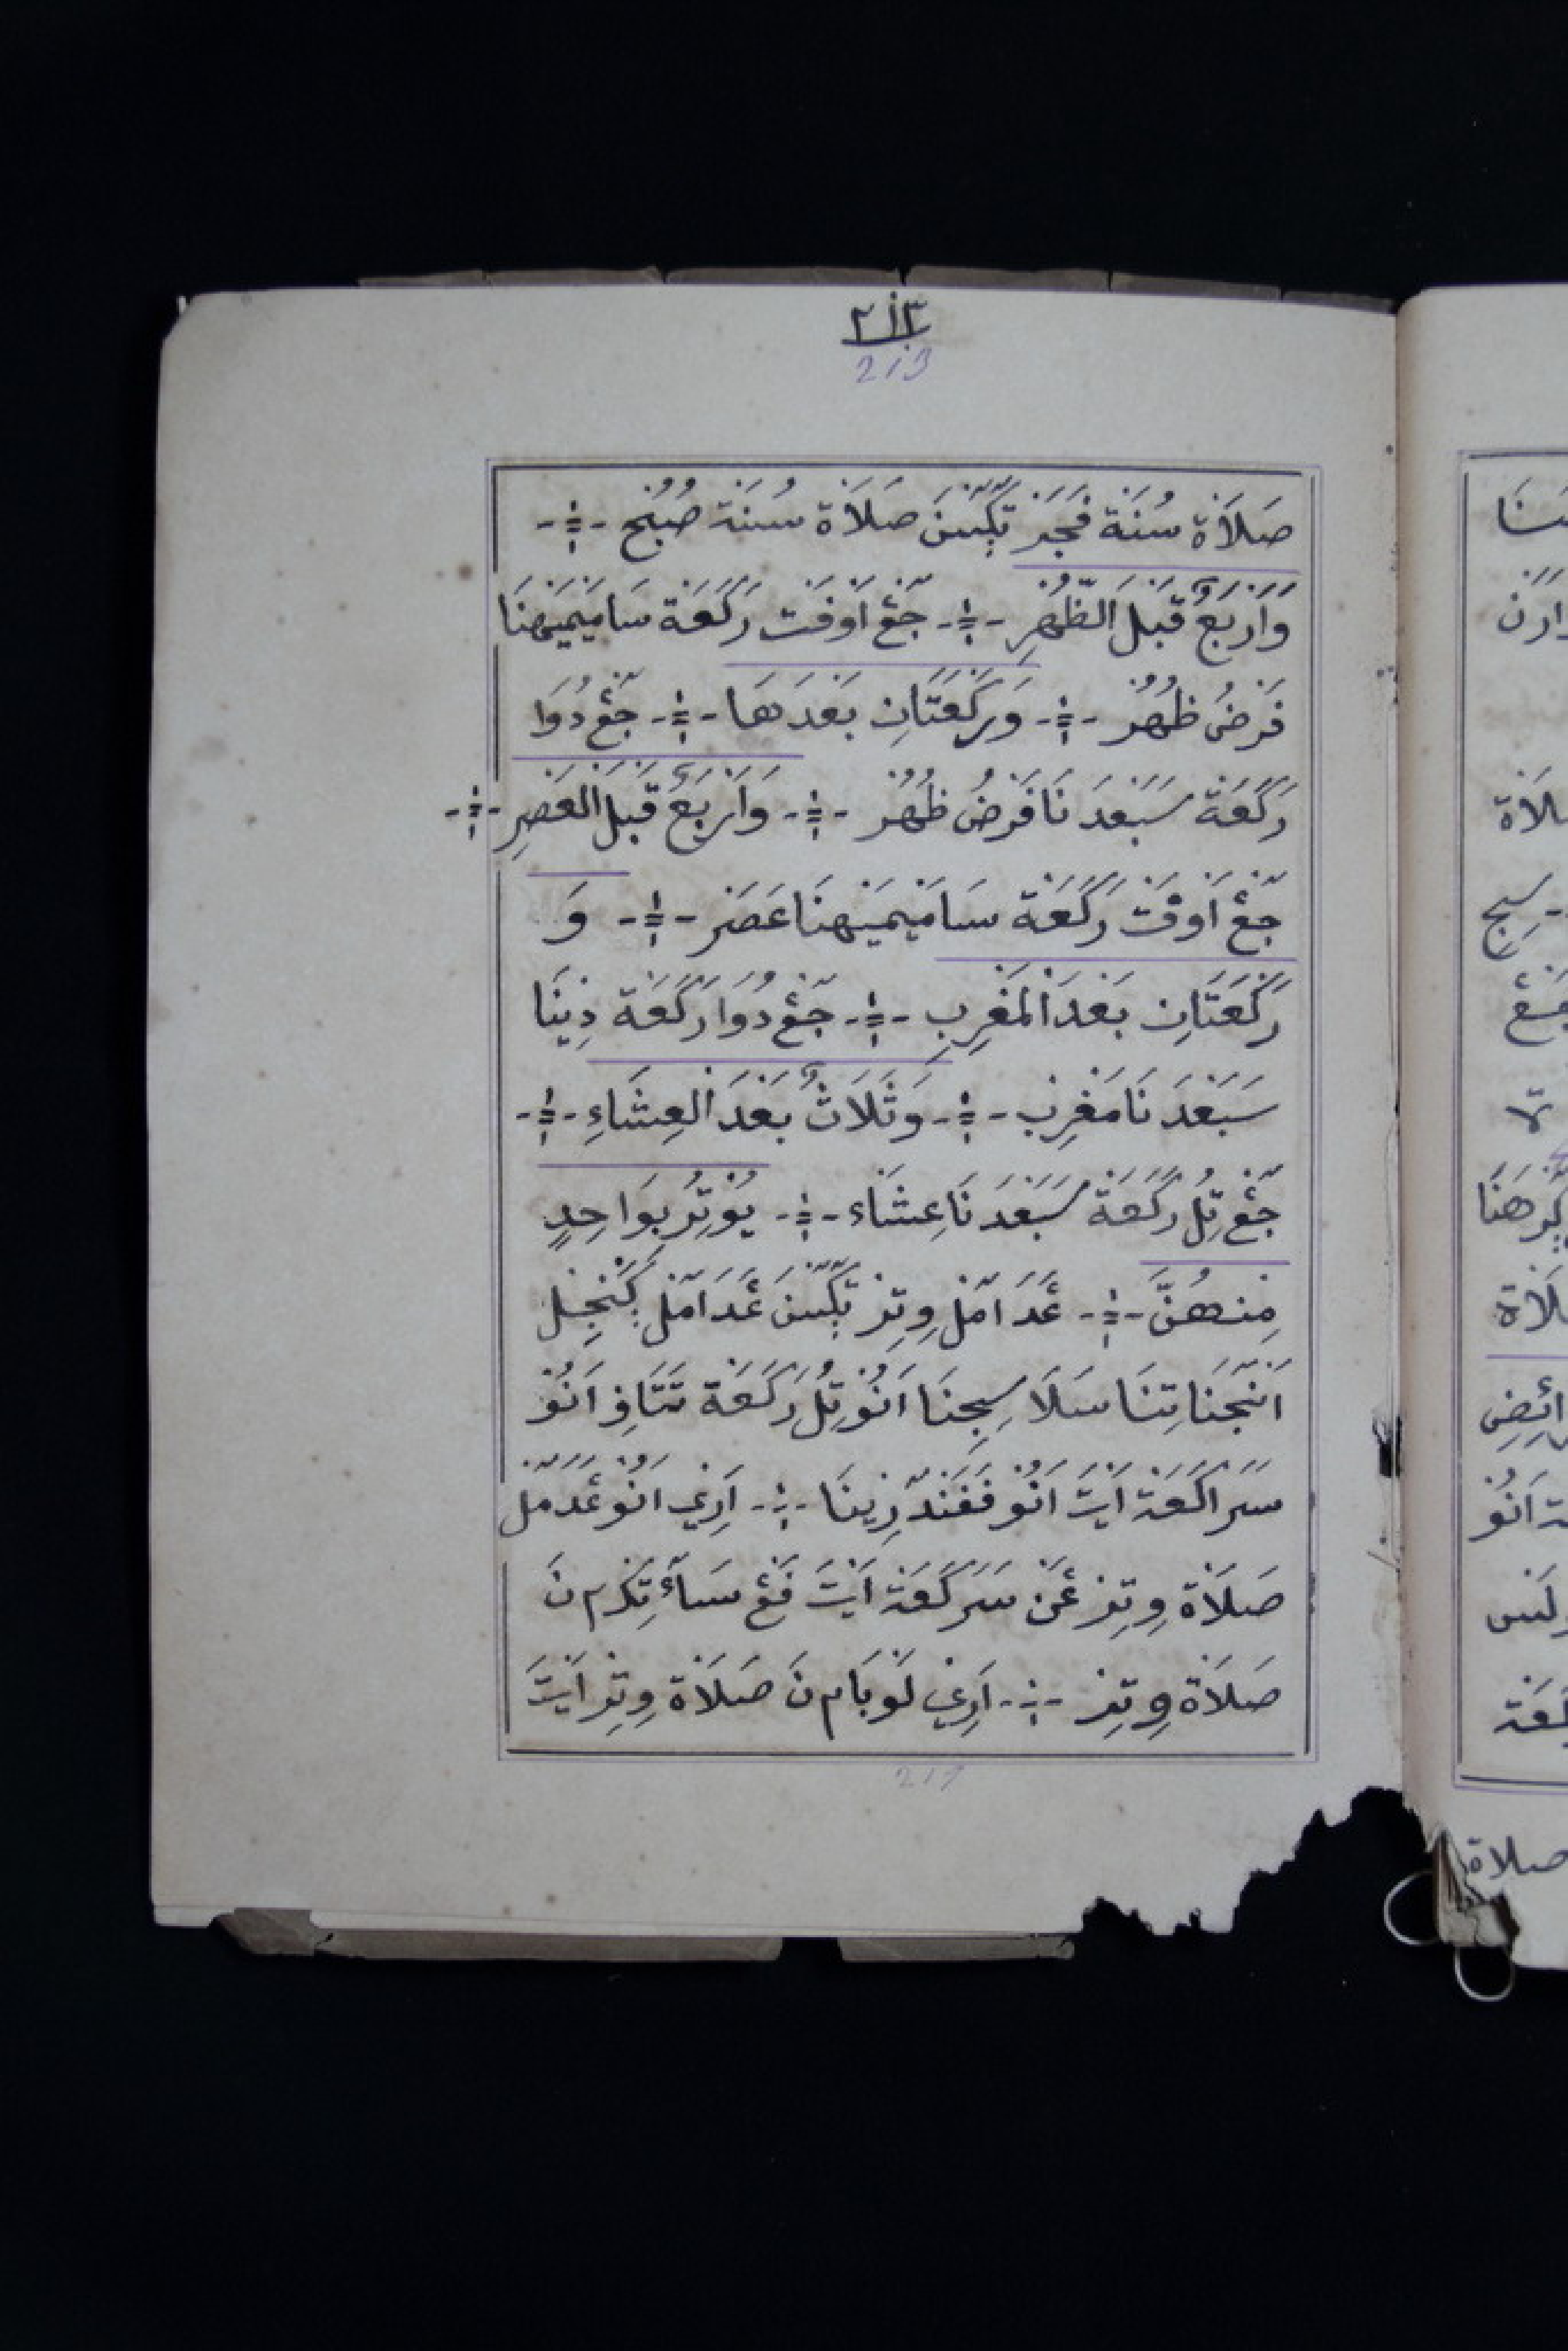 ٢١٣
213
صَلَاةْ سُنَةْ فَجَرْ تَكِّسَنَ صَلَاةْ سُنَةْ صُبُحْ -÷-
وَاَرْبَعٌ قَبْلَ الظُّهْرِ -÷- جَڠْ اَوْفَتْ رَكَعَةْ سَامَيْمَيْهِنَا
فَرْضُ ظُهُرْ -÷- وَرَكْعَتَانِ بَعْدَهَا -÷- جَڠْ دُوَا
رَكَعَةْ سَبَعْدَ نَا فَرْضُ ظُهُرْ -÷- وَاَرْبَعٌ قَبْلَ الْعَصْرِ -÷-
جَڠْ اَوْفَتْ رَكَعَةْ سَامَيْمَيْهِنَا عَصَرْ -÷- وَ
رَكْعَتَانِ بَعْدَ الْمَغْرِبِ -÷- جَڠْ دُوَا رَكَعَةْ دِينَا
سَبَعْدَ نَا مَغْرِبْ -÷- وَثَلَاثٌ بَعْدَ الْعِشَاءِ -÷-
جَڠْ تِلُ رَكَعَةْ سَبَعْدَ نَا عِشَاءْ -÷- يُوْتِرُ بِوَاحِدٍ
مِنْهُنَّ -÷- عَدَ اَمَلْ وِتِرْ تَكِّسَنَ عَدَ اَمَلْ كَنْجِلْ
اَنْجَنَاتِنَا سَلَا سِجِنَا اَنُوْ تِلُ رَكَعَةْ تَتَافِ اَنُوْ
سَرَاكَعَةْ اَيْتَ اَنُوْ فَفَنْدَ رِينَا -÷- اَرِغِ اَنُوْ عَدَمَلْ
صَلَاةْ وِتِرْ عَنْ سَرَكَعَةْ اَيْتَ فَڠْ سَاءَ تِكْرَمْ نَ
صَلَاةْ وِتِرْ -÷- اَرِغِ لَوْبَامْ نَ صَلَاةْ وِتِرْ اَيْتَ
صلاة